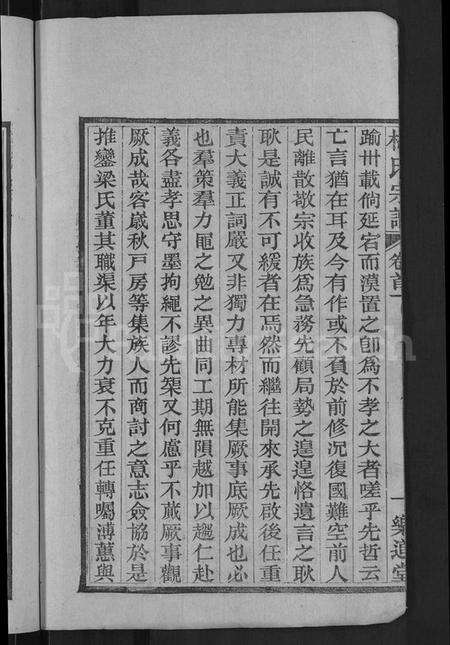 踰卅載倘延宕而漠置之卽爲不孝之大者嗟乎先哲云
亡言猶在耳及今有作或不負於前修況復國難空前人
民離散敬宗收族爲急務先顧局勢之遑遑恪遺言之耿
耿是誠有不可緩者在焉然而繼往開來承先啟後任重
責大義正詞嚴又非獨力專材所能集厥事底厥成也必
也羣策羣力黽之勉之異曲同工期無隕越加以趨仁赴
義各盡孝思守墨拘繩不謬先榘又何慮乎不蕆厥事觀
厥成哉客歲秋戸房等集族人而商討之意志僉協於是
推鑾梁氏董其職渠以年大力衰不克重任轉囑溥蕙與
氏宗譜
卷首
一
樂道堂